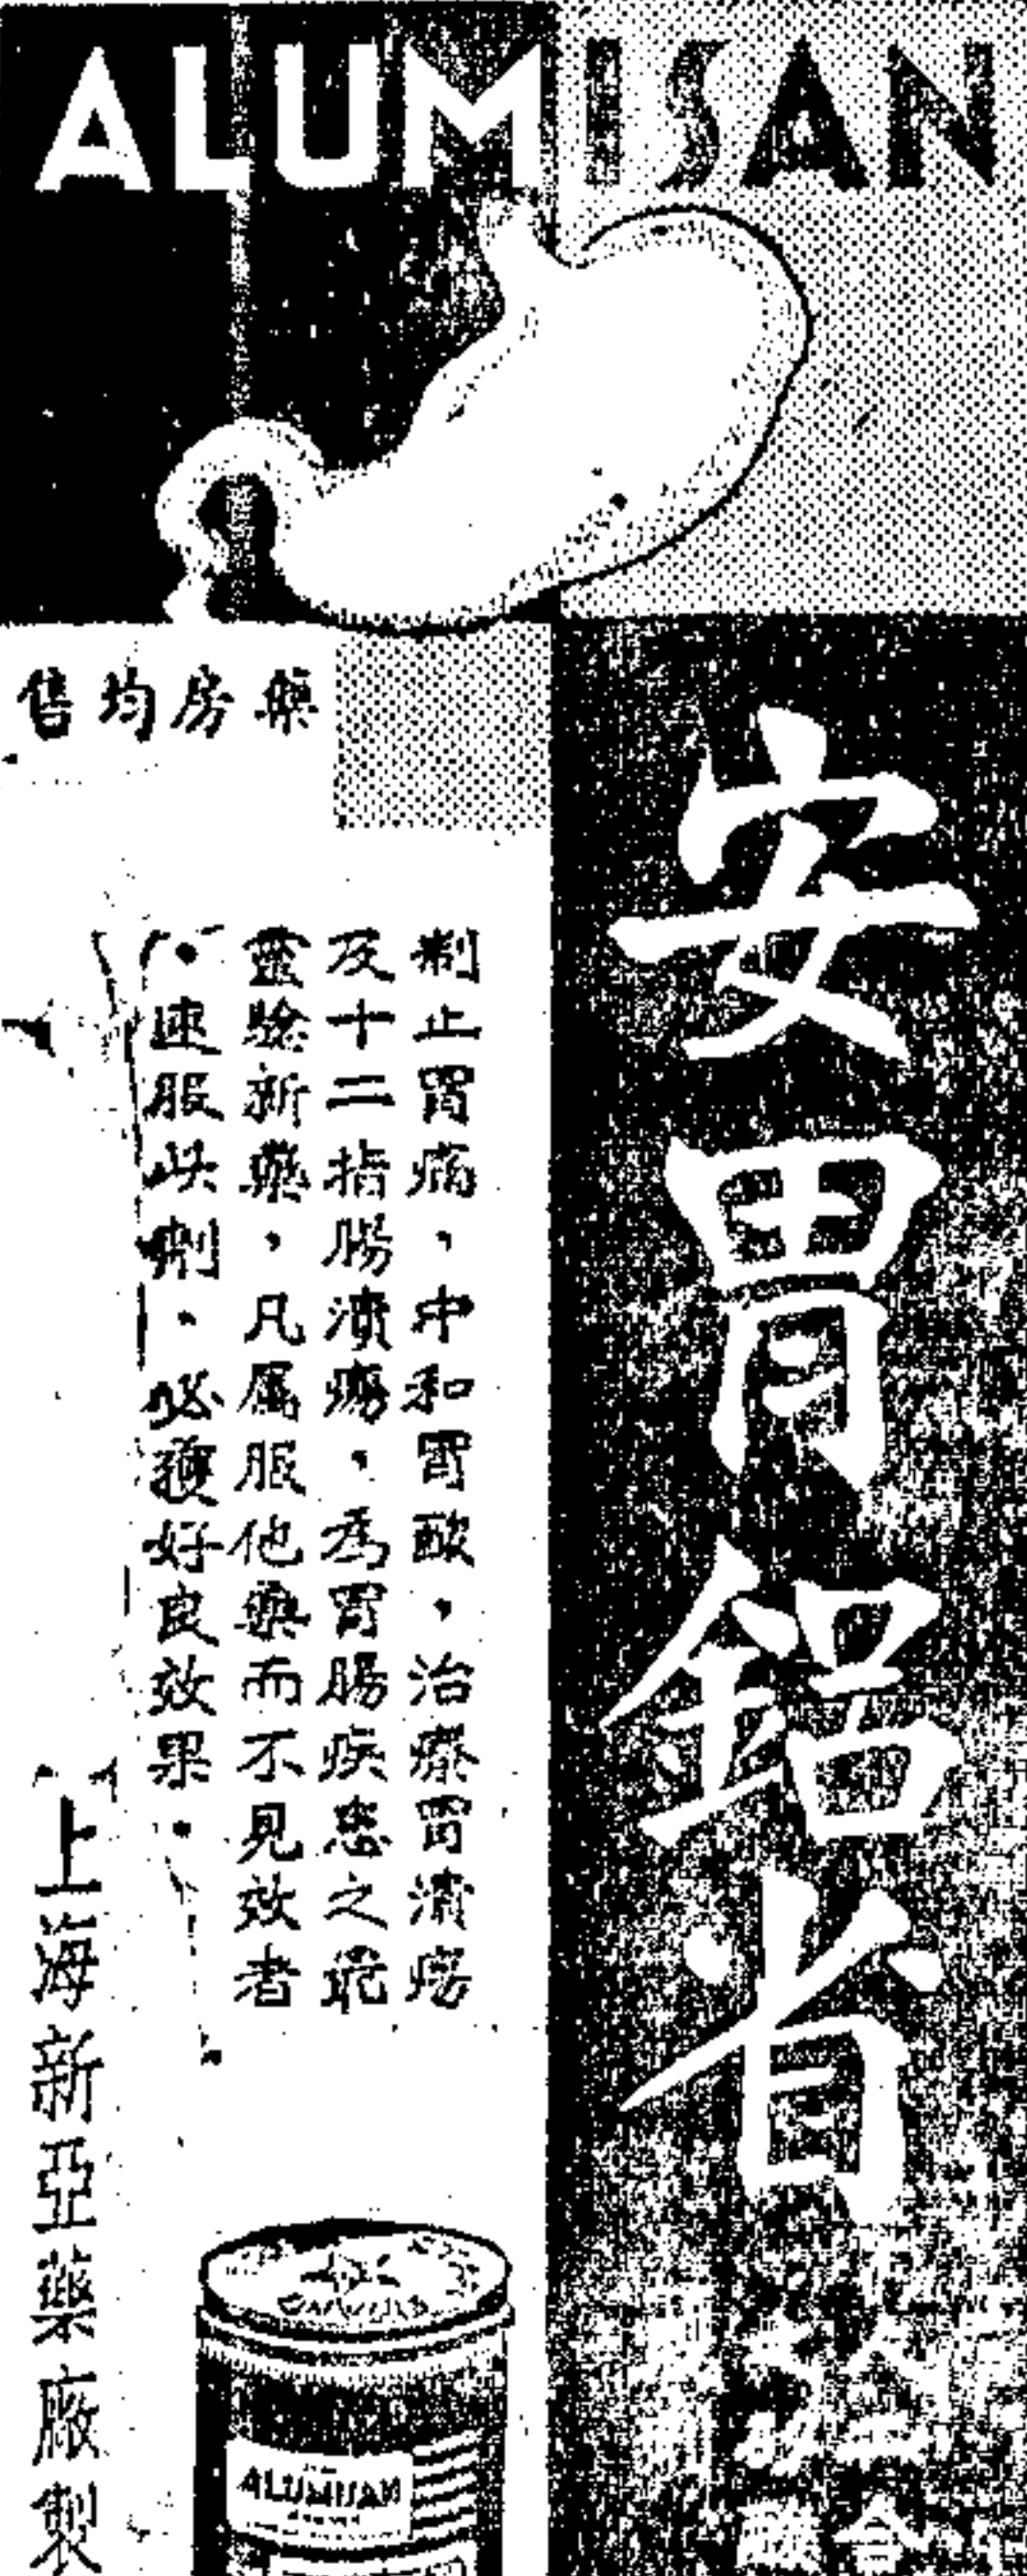 ALUMISAN
安胃鋁省
制止胃痛，中和胃酸，治療胃潰瘍
及十二指腸潰瘍，為胃腸疾患之最
靈驗新藥，凡屬服他藥而不見效者
，速服此劑，必獲好良效果。
藥房均售
上海新亞藥廠製
ALUMISAN